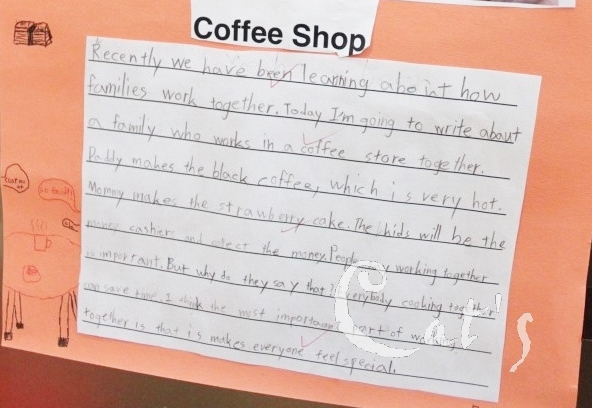 Coffee Shop
Recently we have been learning about how
families work together. Today I'm going to write about
a family who works in a coffee store together.
Daddy makes the black coffee, which is very hot.
Mommy makes the strawberry cake. The kids will be the
money cashiers and collect the money. People say working together
is important. But why do they say that? Everybody cooking together
can save time. I think the most important part of working
together is that is makes everyone feel special.
Cat's